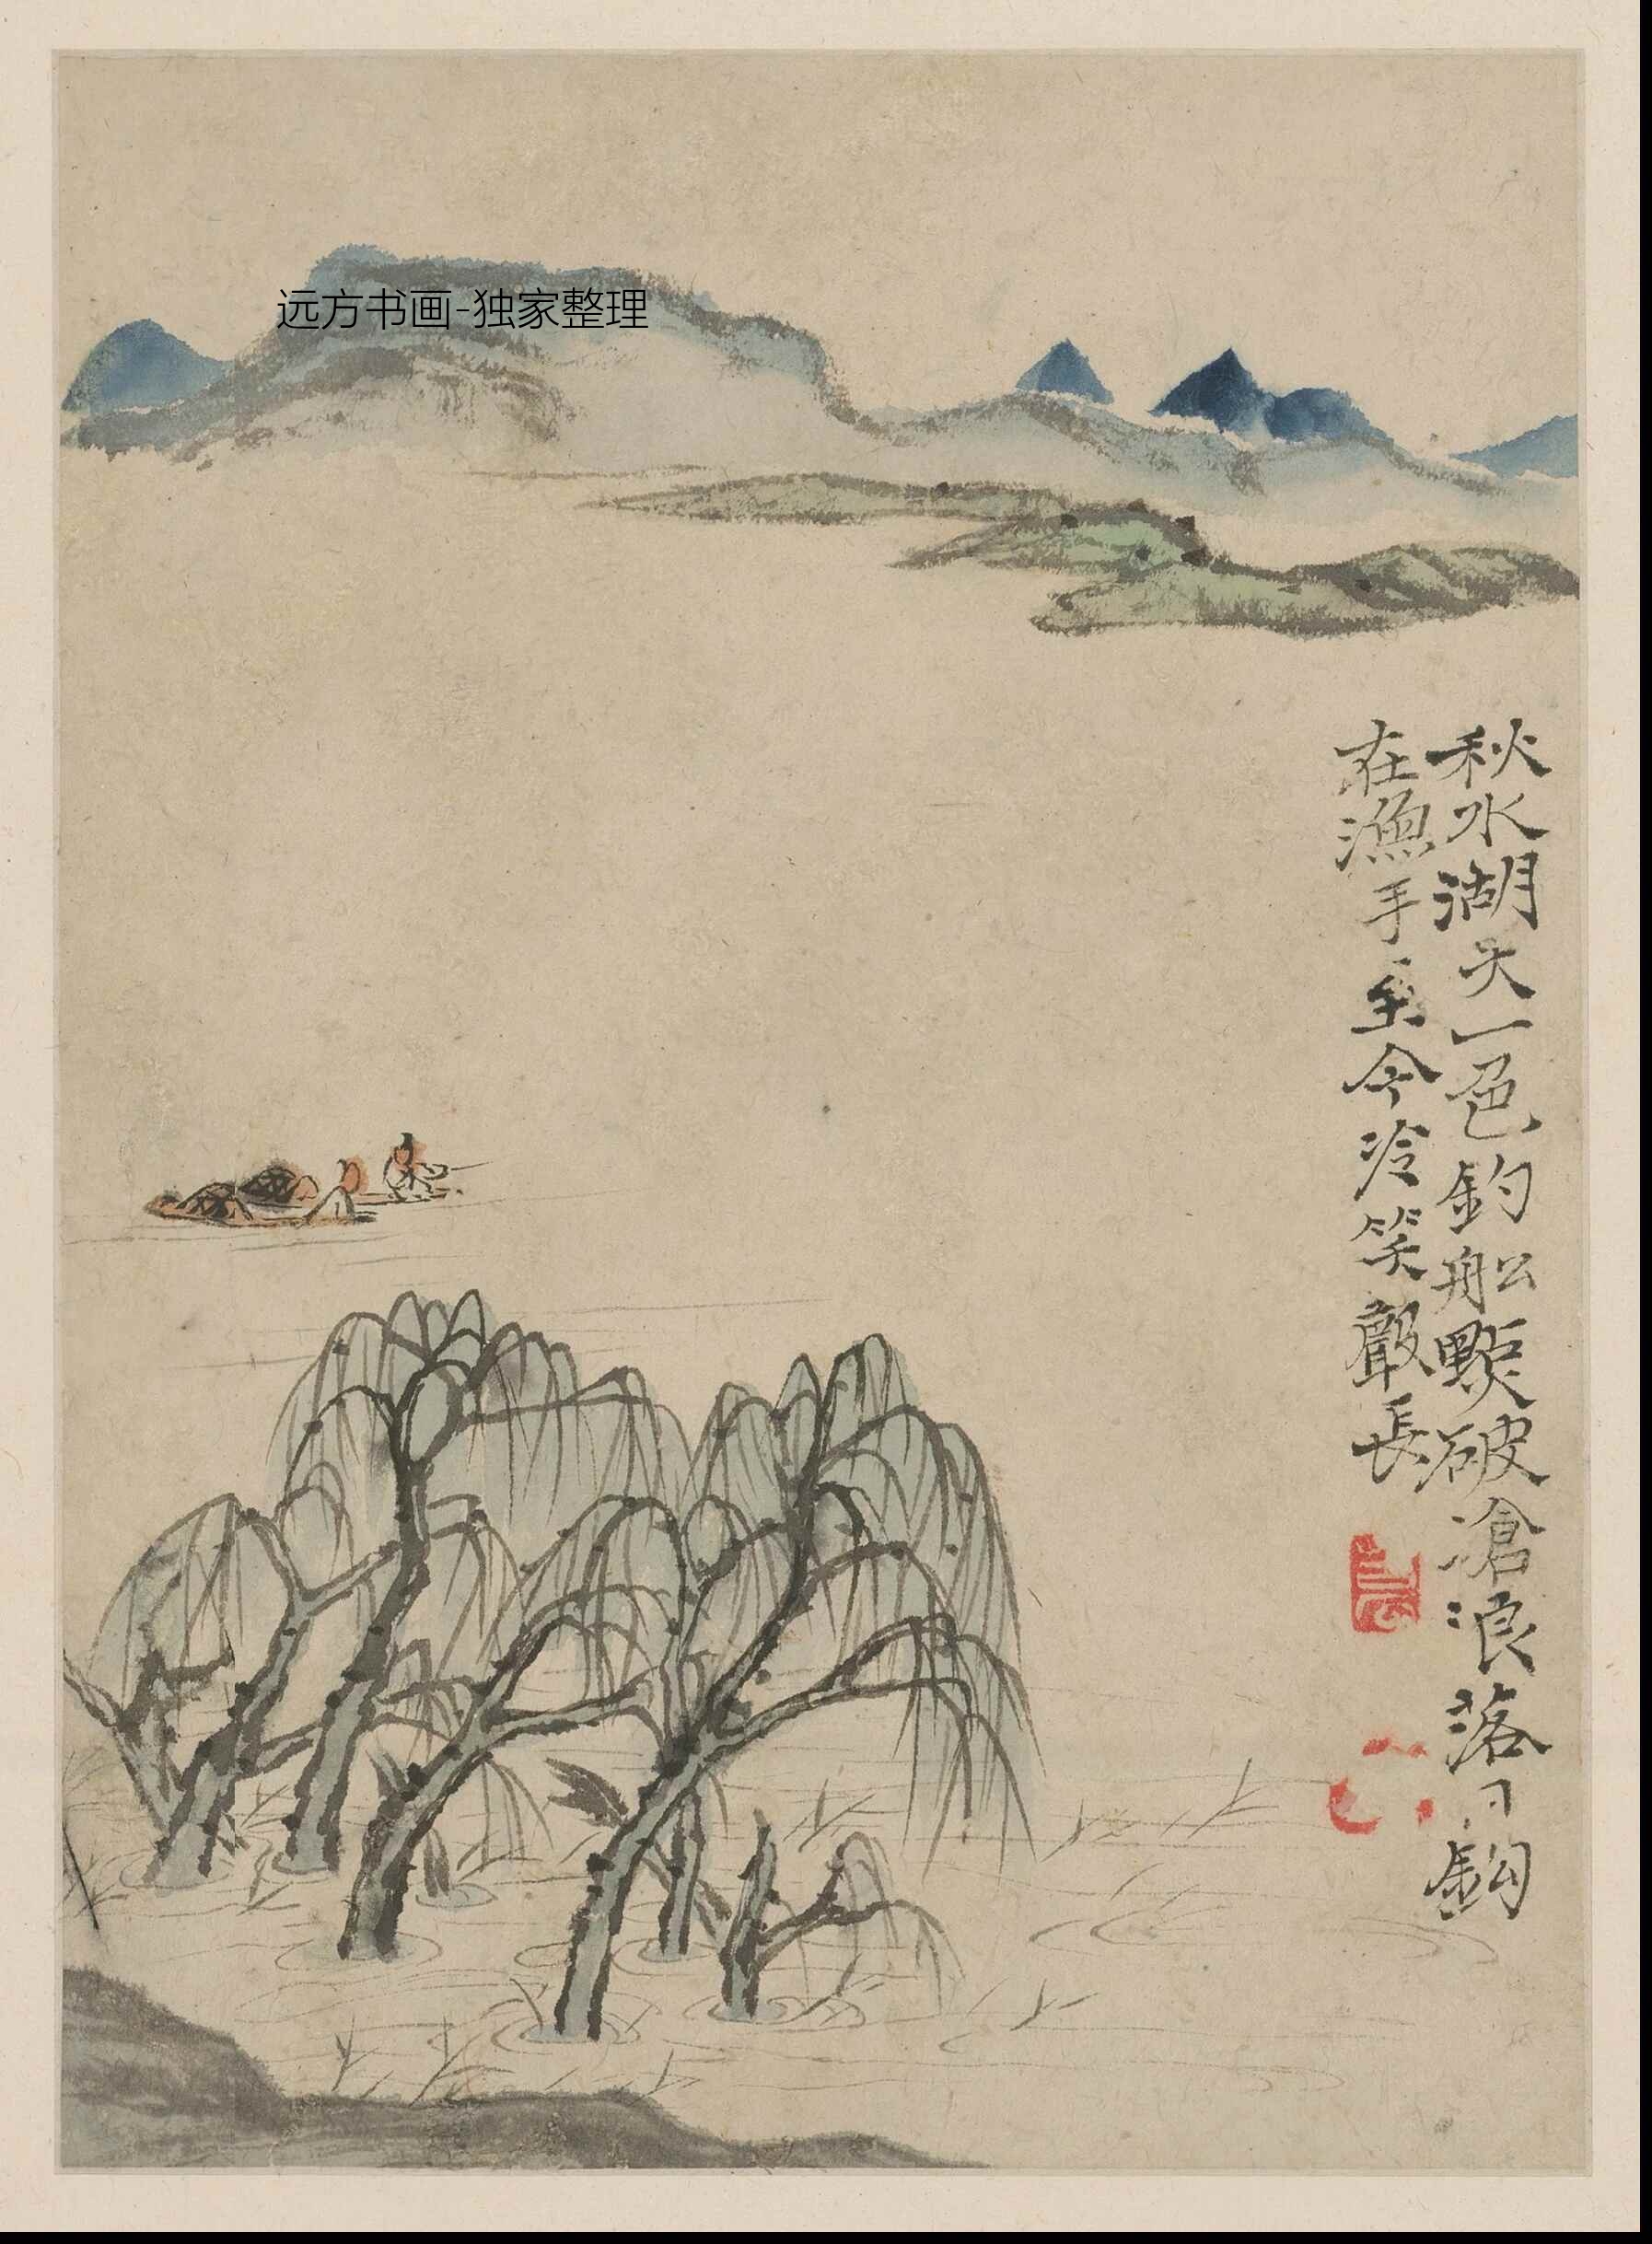 远方书画-独家整理
秋水湖天一色釣舩點破滄浪落日鈎
在漁手至今冷笑聲長